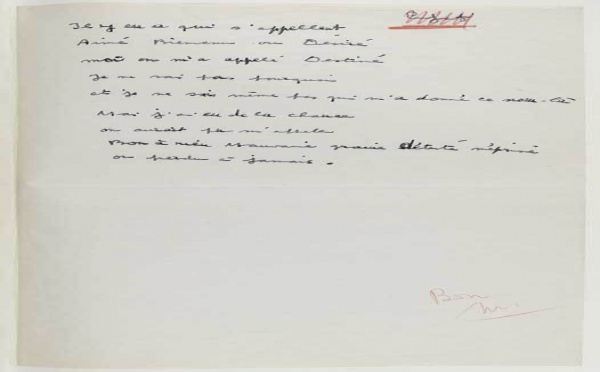 Il y en a qui s'appellent
Aimé Bienvenu ou Désiré
moi on m'a appelé Destiné
Je ne sais pas pourquoi
et je ne sais même pas qui m'a donné ce nom-là
Mais j'ai eu de la chance
on aurait pu m'appeler
Bon à rien Mauvaise graine détesté méprisé
ou perdu à jamais.
Bon